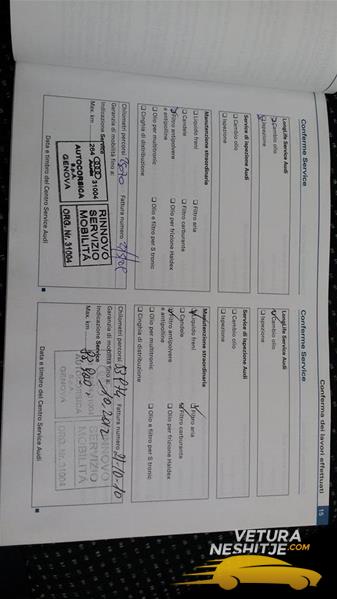 Conferma dei lavori effettuati 15
Conferme Service
LongLife Service Audi
Cambio olio
Ispezione
Service di ispezione Audi
Cambio olio
Ispezione
Manutenzione straordinaria
Liquido freni
Filtro aria
Candele
Filtro carburante
Filtro antipolvere e antipolline
Olio per frizione Haldex
Olio per multitronic
Olio e filtro per S tronic
Cinghia di distribuzione
Chilometri percorsi
Fattura numero
Garanzia di mobilità fino a:
Indicazione Service
Max. km
264 31004
AUTOCORSICA
S.p.A.
GENOVA
RINNOVO
SERVIZIO
MOBILITÀ
ORG. Nr. 31004
Data e timbro del Centro Service Audi
Conferme Service
LongLife Service Audi
Cambio olio
Ispezione
Service di ispezione Audi
Cambio olio
Ispezione
Manutenzione straordinaria
Liquido freni
Filtro aria
Candele
Filtro carburante
Filtro antipolvere e antipolline
Olio per frizione Haldex
Olio per multitronic
Olio e filtro per S tronic
Cinghia di distribuzione
Chilometri percorsi
Fattura numero 21-10-10
Garanzia di mobilità fino a:
10.2012
Indicazione Service
Max. km
S.p.A.
GENOVA
RINNOVO
SERVIZIO
MOBILITÀ
ORG. Nr. 31004
Data e timbro del Centro Service Audi
VETURA
NESHITJE.COM